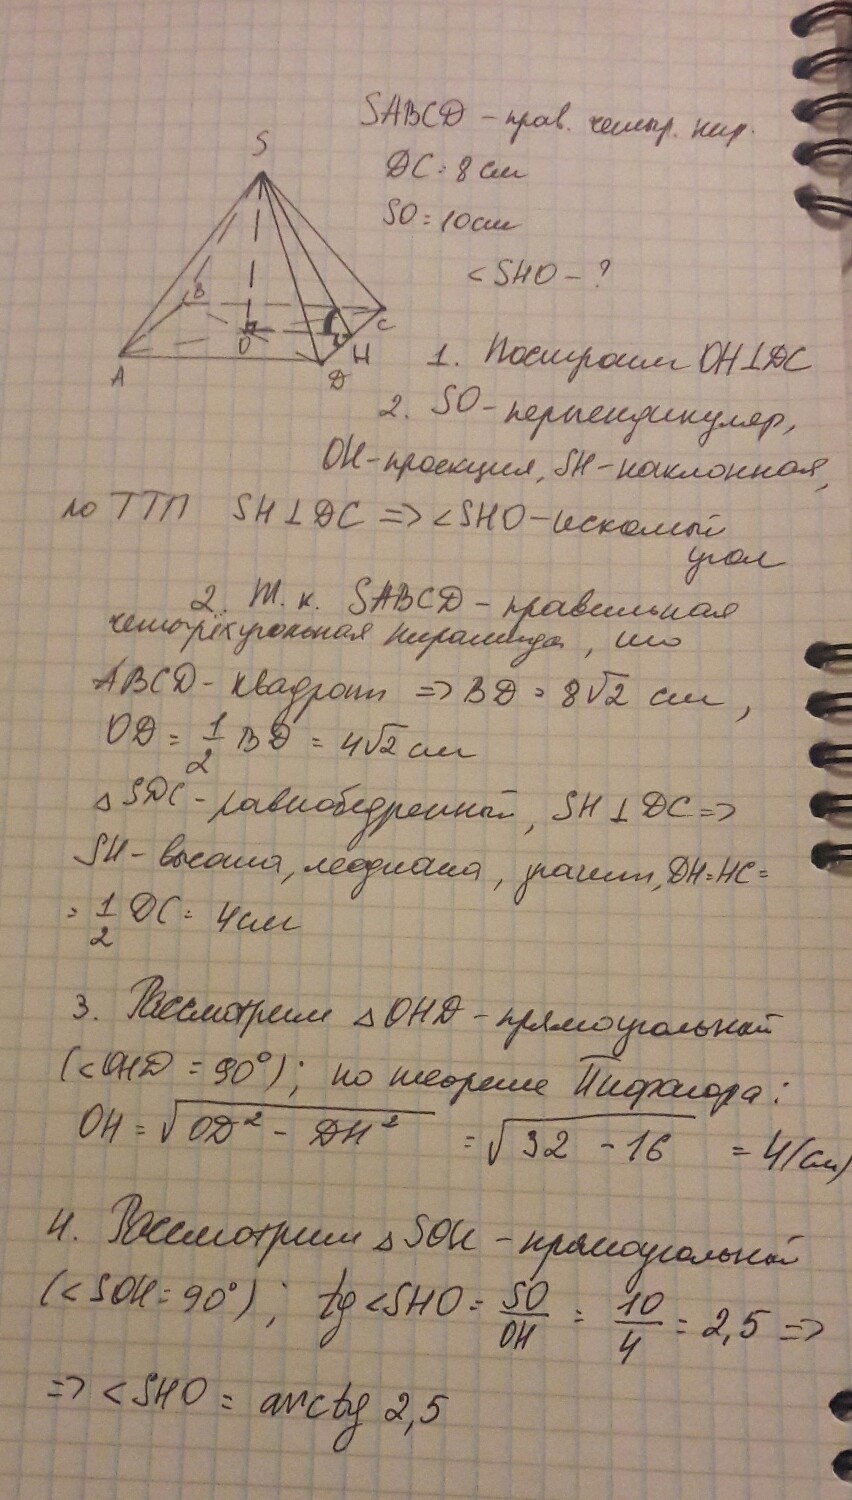 SABCD - прав. четыр. пир.
DC = 8 см
SO = 10 см
<SHO - ?
S
B
C
O
H
A
D
1. Построим OH⊥DC
2. SO - перпендикуляр,
OH - проекция, SH - наклонная,
по ТТП SH⊥DC => <SHO - искомый
угол
2. Т. к. SABCD - правильная
четырёхугольная пирамида, то
ABCD - квадрат => BD = 8√2 см,
OD = 1/2 BD = 4√2 см
△SDC - равнобедренный, SH⊥DC =>
SH - высота, медиана, значит, DH=HC=
= 1/2 DC = 4 см
3. Рассмотрим △OHD - прямоугольный
(<OHD = 90°); по теореме Пифагора:
OH = √(OD² - DH²) = √(32 - 16) = 4 (см)
4. Рассмотрим △SOH - прямоугольный
(<SOH = 90°); tg <SHO = SO/OH = 10/4 = 2,5 =>
=> <SHO = arctg 2,5